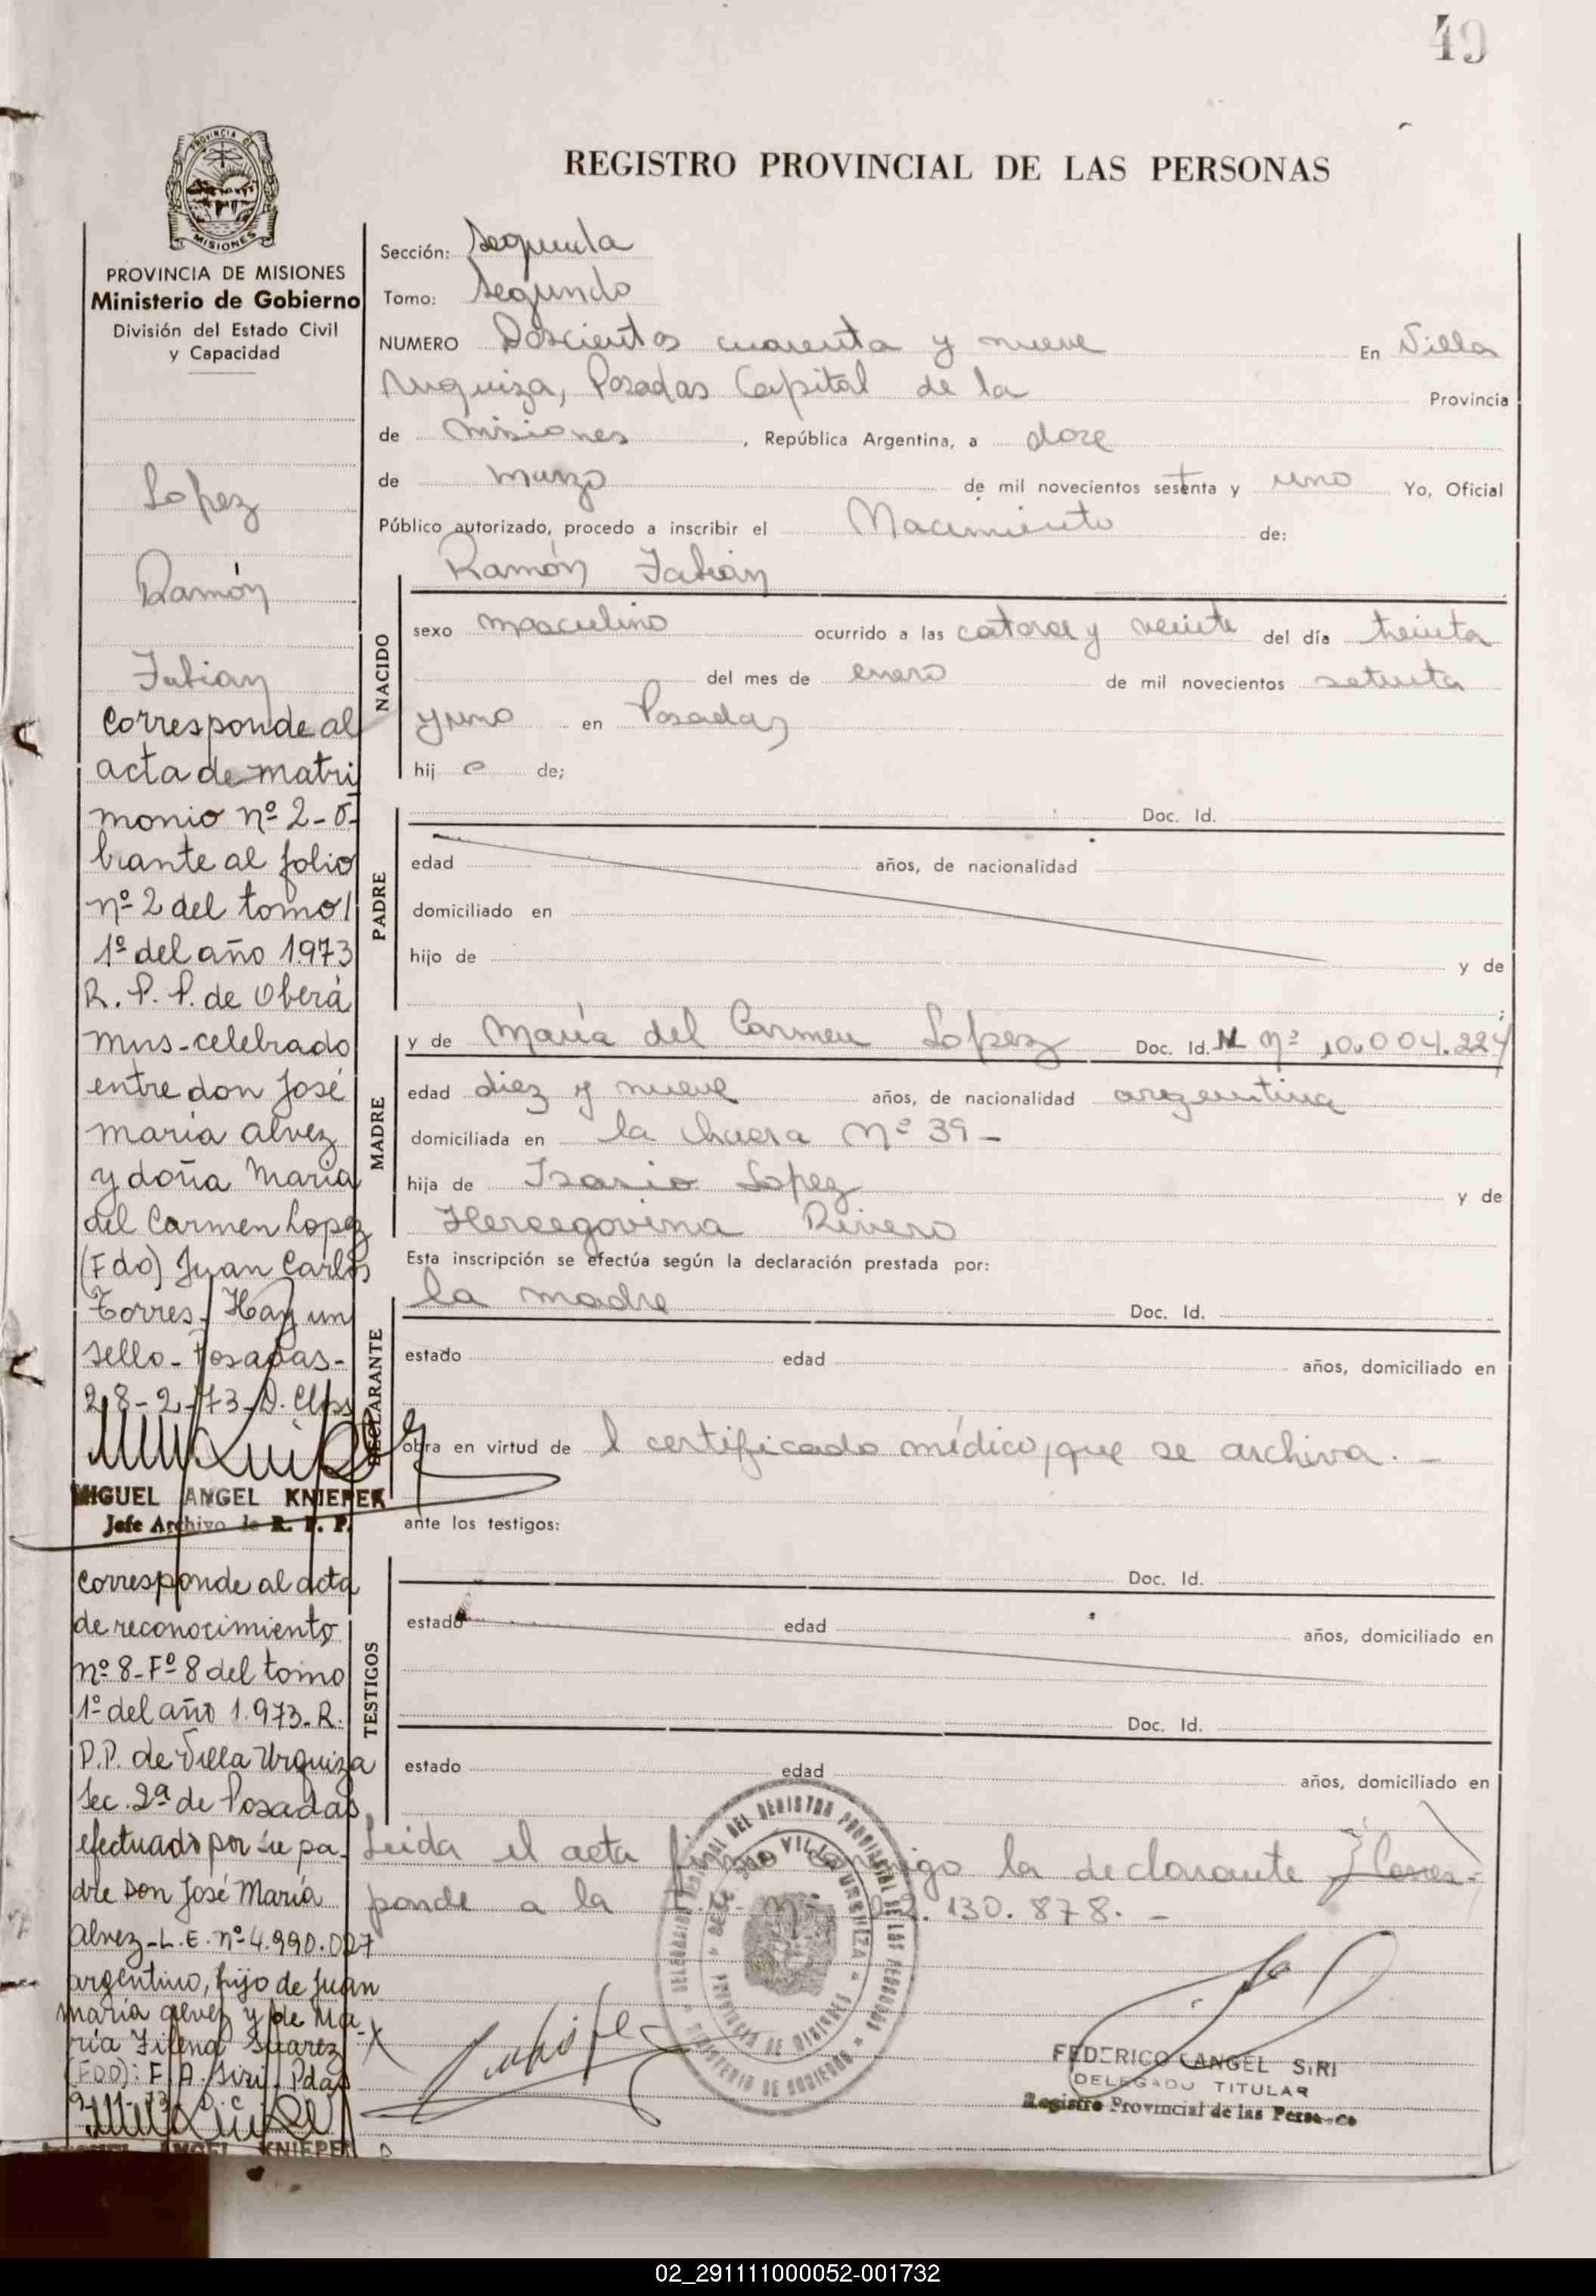 49
PROVINCIA DE
MISIONES
REGISTRO PROVINCIAL DE LAS PERSONAS
PROVINCIA DE MISIONES
Ministerio de Gobierno
División del Estado Civil
y Capacidad
Lopez
Ramón
Fabian
Corresponde al
acta de matri
monio nº 2-o-
brante al folio
nº 2 del tomo
1º del año 1973
R. P. P. de Oberá
Mns-celebrado
entre don José
maría alvez
y doña María
del Carmen Lopez
(Fdo) Juan Carlos
Torres. Hay un
sello-Posadas-
28-2-73-D.
MIGUEL ANGEL KNIEPER
Jefe Archivo de R. P. P.
Corresponde al acta
de reconocimiento
nº 8-Fº 8 del tomo
1º del año 1.973-R.
P.P. de Villa Urquiza
Sec. 2ª de Posadas
efectuado por su pa-
dre Don José María
Alvez-L.E. nº 4.990.027
argentino, hijo de Juan
maría alvez y de Ma-
ría Suarez
(FDO): F. A. Siri. Pdas
MIGUEL ANGEL KNIEPER
Sección: Segunda
Tomo: Segundo
NUMERO Doscientos cuarenta y nueve En Villa
Urquiza, Posadas Capital de la Provincia
de Misiones, República Argentina, a doce
de marzo de mil novecientos setenta y uno Yo, Oficial
Público autorizado, procedo a inscribir el Nacimiento de:
NACIDO
Ramón Fabián
sexo masculino ocurrido a las catorce y veinte del día treinta
del mes de enero de mil novecientos setenta
y uno en Posadas
hij o de;
PADRE
Doc. Id.
edad años, de nacionalidad
domiciliado en
hijo de y de
;
MADRE
y de María del Carmen Lopez Doc. Id. Nº 10.004.224
edad diez y nueve años, de nacionalidad argentina
domiciliada en la chacra Nº 39-
hija de Lopez y de
Hercegovina Rivero
Esta inscripción se efectúa según la declaración prestada por:
DECLARANTE
la madre Doc. Id.
estado edad años, domiciliado en
obra en virtud de l certificado médico, que se archiva. -
ante los testigos:
TESTIGOS
Doc. Id.
estado edad años, domiciliado en
Doc. Id.
estado edad años, domiciliado en
Leida el acta firma conmigo la declarante Corres-
ponde a la 22.130.878. -
VILLA URQUIZA
MINISTERIO DE GOBIERNO
FEDERICO ANGEL SIRI
DELEGADO TITULAR
Registro Provincial de las Personas
02_291111000052-001732